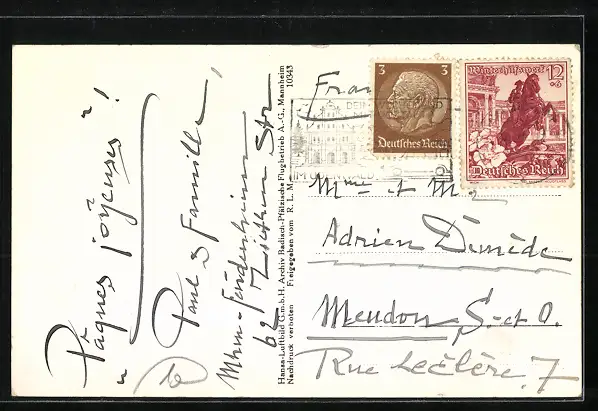 "Pâques joyeuses"!
Paul & Famille!
Mhm-Feudenheim
62 Ziethen Str
Hansa-Luftbild G.m.b.H. Archiv Badisch-Pfälzische Flugbetrieb A.-G., Mannheim
Nachdruck verboten Freigegeben vom R. L. M. 10343
3 3
Deutsches Reich
Winterhilfswerk 12
Deutsches Reich
IM ODENWALD
Mme et Mr
Adrien Demède
Meudon S-et O.
Rue Leclère 7